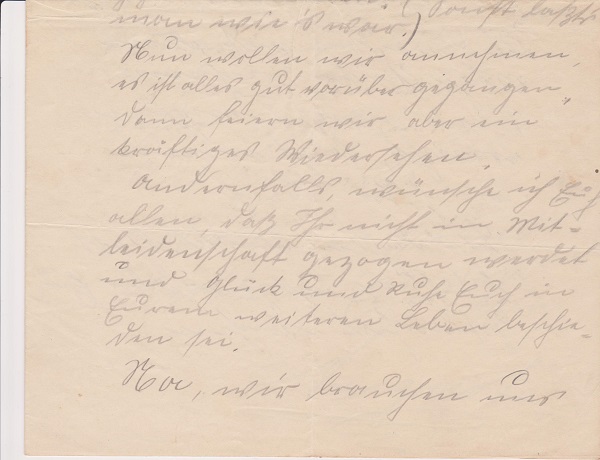 ) Sonst laßt
man wie's war.
Nun wollen wir annehmen,
es ist alles gut vorüber gegangen,
dann feiern wir aber ein
kräftiges Wiedersehen.
Andernfalls, wünsche ich Euch
allen, daß Ihr nicht in Mit-
leidenschaft gezogen werdet
und Glück und Ruhe Euch in
Eurem weiteren Leben beschie-
den sei.
Na, wir brauchen uns